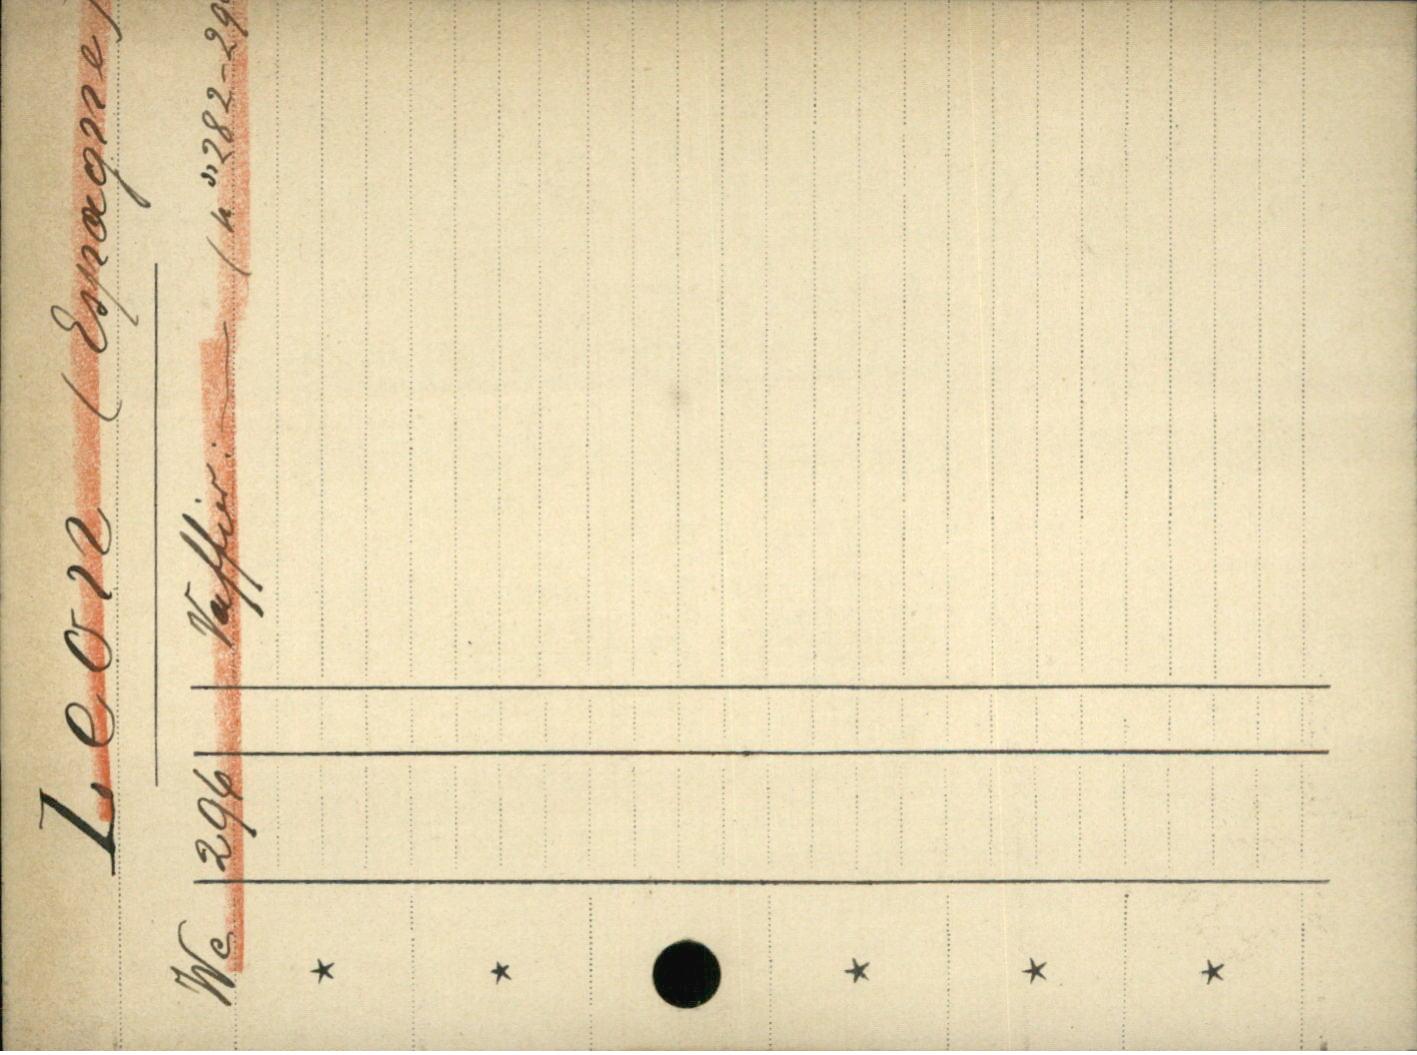 Leon (Espagne)
We 296 Vaffier : — (nos 282-29